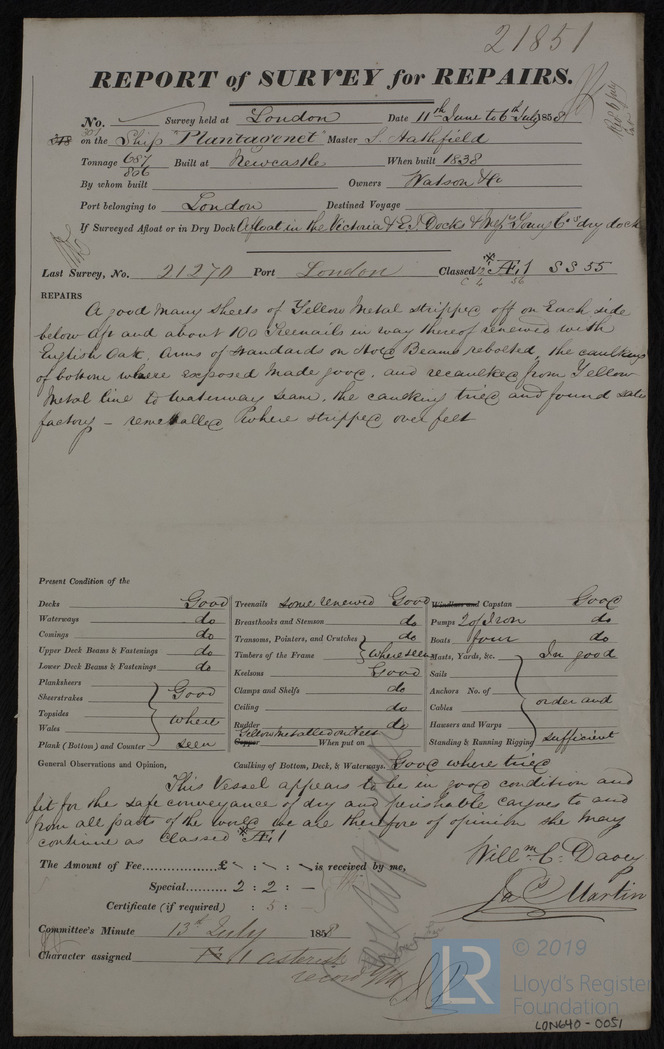 21851
REPORT of SURVEY for REPAIRS.
No. Survey held at London Date 11th June to 6th July 1858
on the Ship "Plantagenet" Master S. Hathfield
Tonnage 687 Built at Newcastle When built 1838
806
By whom built Owners Watson & Co
Port belonging to London Destined Voyage
If Surveyed Afloat or in Dry Dock Afloat in the Victoria & E.I Docks & Young Co's dry dock
Last Survey, No. 21270 Port London Classed Æ1 SS 55
REPAIRS
A good many sheets of Yellow Metal stripped off on Each side
below aft and about 100 Treenails in way thereof renewed with
English Oak, Arms of standards on Hold Beams rebolted, the caulking
of bottom where exposed made good, and recaulked from Yellow
Metal line to waterway seam, the caulking tried and found satis
factory - remetalled where stripped over felt
Present Condition of the
Decks Good Treenails some renewed Good Windlass and Capstan Good
Waterways do Breasthooks and Stemson do Pumps 2 of Iron do
Comings do Transoms, Pointers, and Crutches do Boats four do
Upper Deck Beams & Fastenings do Timbers of the Frame where seen Masts, Yards, &c. In good
Lower Deck Beams & Fastenings do Keelsons Good Sails
Planksheers Clamps and Shelfs do Anchors No. of
Sheerstrakes Good Ceiling do Cables order and
Topsides where Rudder do Hawsers and Warps
Wales Yellow Metalled on Felt
Plank (Bottom) and Counter seen Copper When put on Standing & Running Rigging sufficient
General Observations and Opinion, Caulking of Bottom, Deck, & Waterways. Good where tried
This Vessel appears to be in good condition and
fit for the safe conveyance of dry and perishable cargoes to and
from all parts of the world we are therefore of opinion she may
continue as classed Æ1
Willm. C. Davey
The Amount of Fee £ : : is received by me,
Special 2 : 2 : -
Jas Martin
Certificate (if required) : 5 :
Committee's Minute 13th July 1858
Character assigned Æ 1 asterisk
record
© 2019
LR
Lloyd's Register
Foundation
LON640-0051